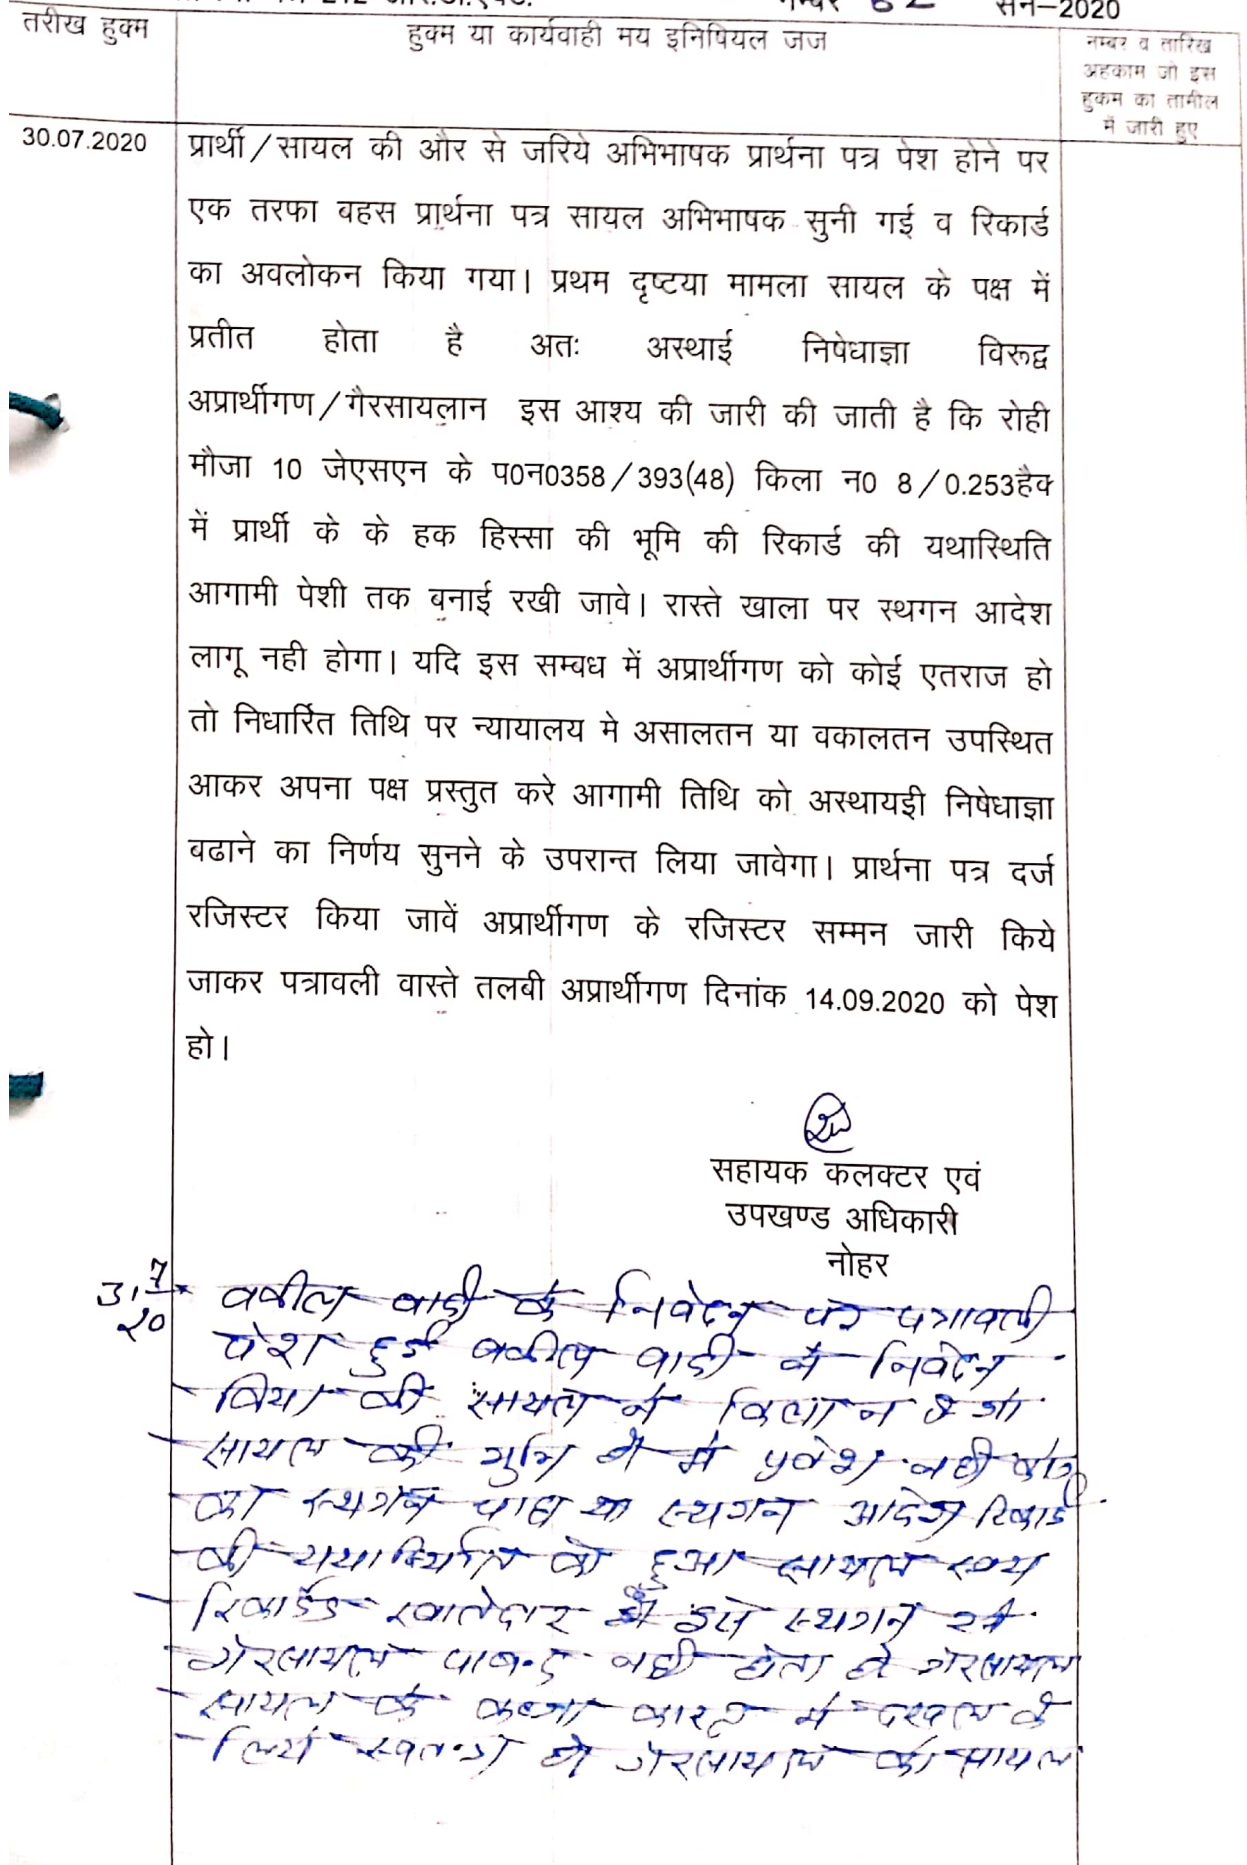 नम्बर 62 सन–2020
तरीख हुक्म
हुक्म या कार्यवाही मय इनिषियल जज
नम्बर व तारिख
अहकाम जो इस
हुकम का तामील
में जारी हुए
30.07.2020
प्रार्थी/सायल की और से जरिये अभिभाषक प्रार्थना पत्र पेश होने पर
एक तरफा बहस प्रार्थना पत्र सायल अभिभाषक सुनी गई व रिकार्ड
का अवलोकन किया गया। प्रथम दृष्टया मामला सायल के पक्ष में
प्रतीत होता है अतः अस्थाई निषेधाज्ञा विरूद्व
अप्रार्थीगण/गैरसायलान इस आश्य की जारी की जाती है कि रोही
मौजा 10 जेएसएन के प0न0358/393(48) किला न0 8/0.253हैक
में प्रार्थी के के हक हिस्सा की भूमि की रिकार्ड की यथास्थिति
आगामी पेशी तक बनाई रखी जावे। रास्ते खाला पर स्थगन आदेश
लागू नही होगा। यदि इस सम्बध में अप्रार्थीगण को कोई एतराज हो
तो निधार्रित तिथि पर न्यायालय मे असालतन या वकालतन उपस्थित
आकर अपना पक्ष प्रस्तुत करे आगामी तिथि को अस्थायई निषेधाज्ञा
बढाने का निर्णय सुनने के उपरान्त लिया जावेगा। प्रार्थना पत्र दर्ज
रजिस्टर किया जावें अप्रार्थीगण के रजिस्टर सम्मन जारी किये
जाकर पत्रावली वास्ते तलबी अप्रार्थीगण दिनांक 14.09.2020 को पेश
हो।
सहायक कलक्टर एवं
उपखण्ड अधिकारी
नोहर
31/7/20 वकील वादी के निवेदन पर पत्रावली
पेश हुई वकील वादी ने निवेदन
किया की सायल ने किला न 8 जो
सायल की भूमि है मे प्रवेश नही
का स्थगन चाहा था स्थगन आदेश रिकार्ड
की यथास्थिति को हुआ सायल स्वय
रिकार्डेड खातेदार है इस स्थगन से
गेरसायल पाबन्द नही होता है गेरसायल
सायल के कब्जा काश्त मे दखल के
लिये स्वतन्त्र है गेरसायल को सायल